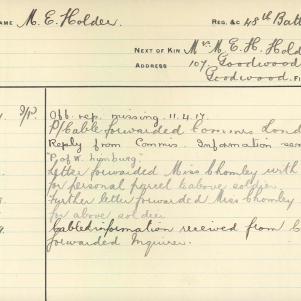 NAME M. E. Holder. REG. &C 48th Batt
NEXT OF KIN Mr. M. E. H. Hold
ADDRESS 107, Goodwood
Goodwood.
Off. rep. missing. 11.4.17
P/Cable forwarded Commis Lond
Reply from Commis. Information
"P. of W. Limburg."
Letter forwarded Miss Chomley with
for personal parcel above soldier.
Further letter forwarded Miss Chomley
for above soldier
Cabled information received from C
forwarded Inquirer.